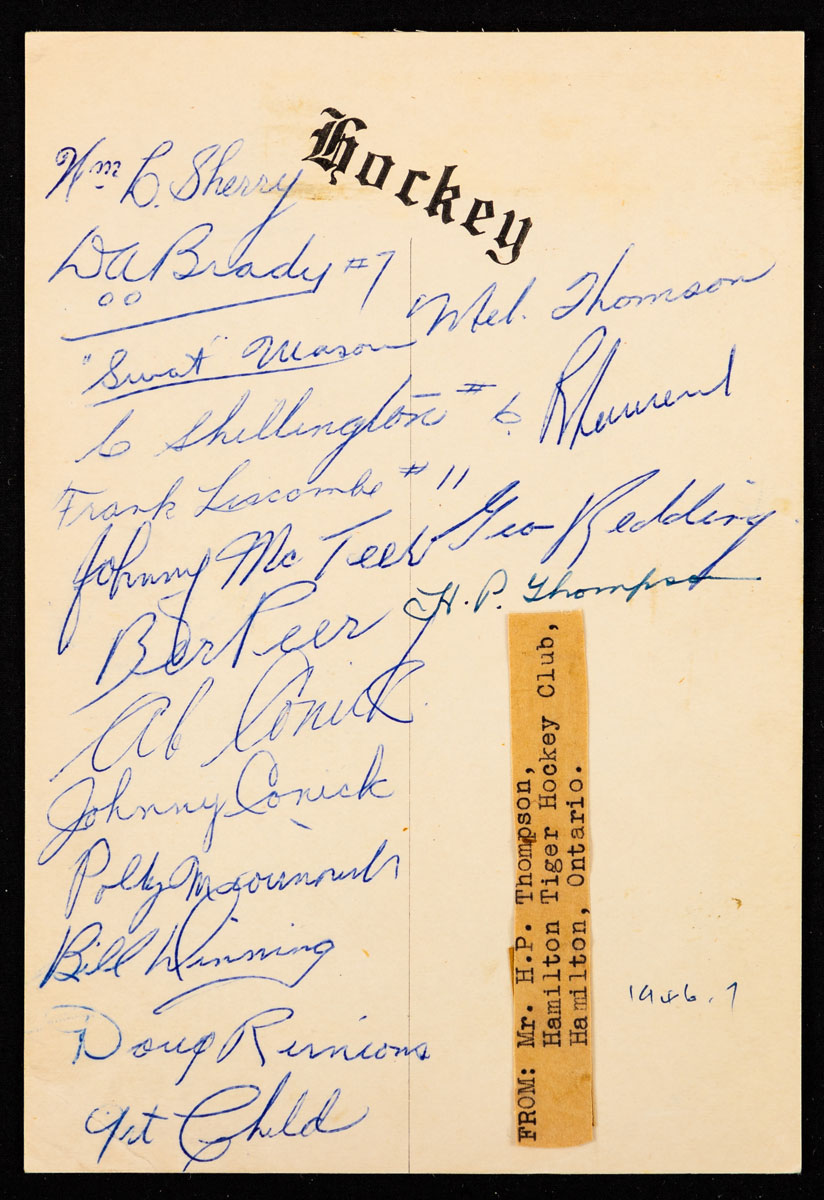 Hockey
Wm L. Sherry
DA Brady #7
"Swat" Mason
C Shillington #6
Frank Liscombe #11
Johnny Mc Teer
Ber Peer
Ab Conick
Johnny Conick
Polly
Bill Winning
Doug Runions
Art Child
Mel. Thomson
Geo Redding
H. P. Thompson
FROM: Mr. H.P. Thompson,
Hamilton Tiger Hockey Club,
Hamilton, Ontario.
1946.7